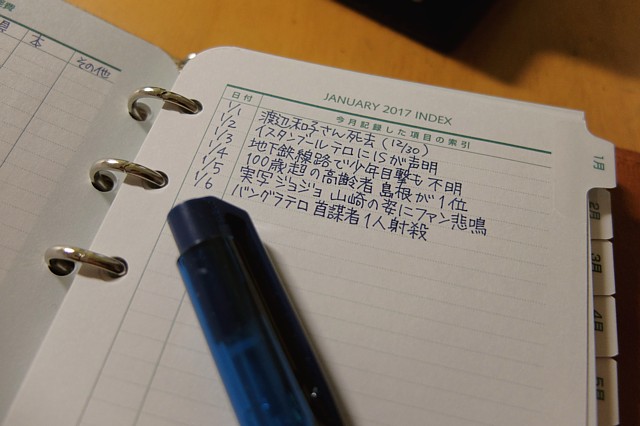 本
その他
JANUARY 2017 INDEX
日付 今月記録した項目の索引
1/1 渡辺和子さん死去(12/30)
1/2 イスタンブールテロにISが声明
1/3 地下鉄線路で少年目撃も不明
1/4 100歳超の高齢者 島根が1位
1/5 実写ジョジョ 山崎の姿にファン悲鳴
1/6 バングラテロ首謀者1人射殺
1月
2月
3月
4月
5月